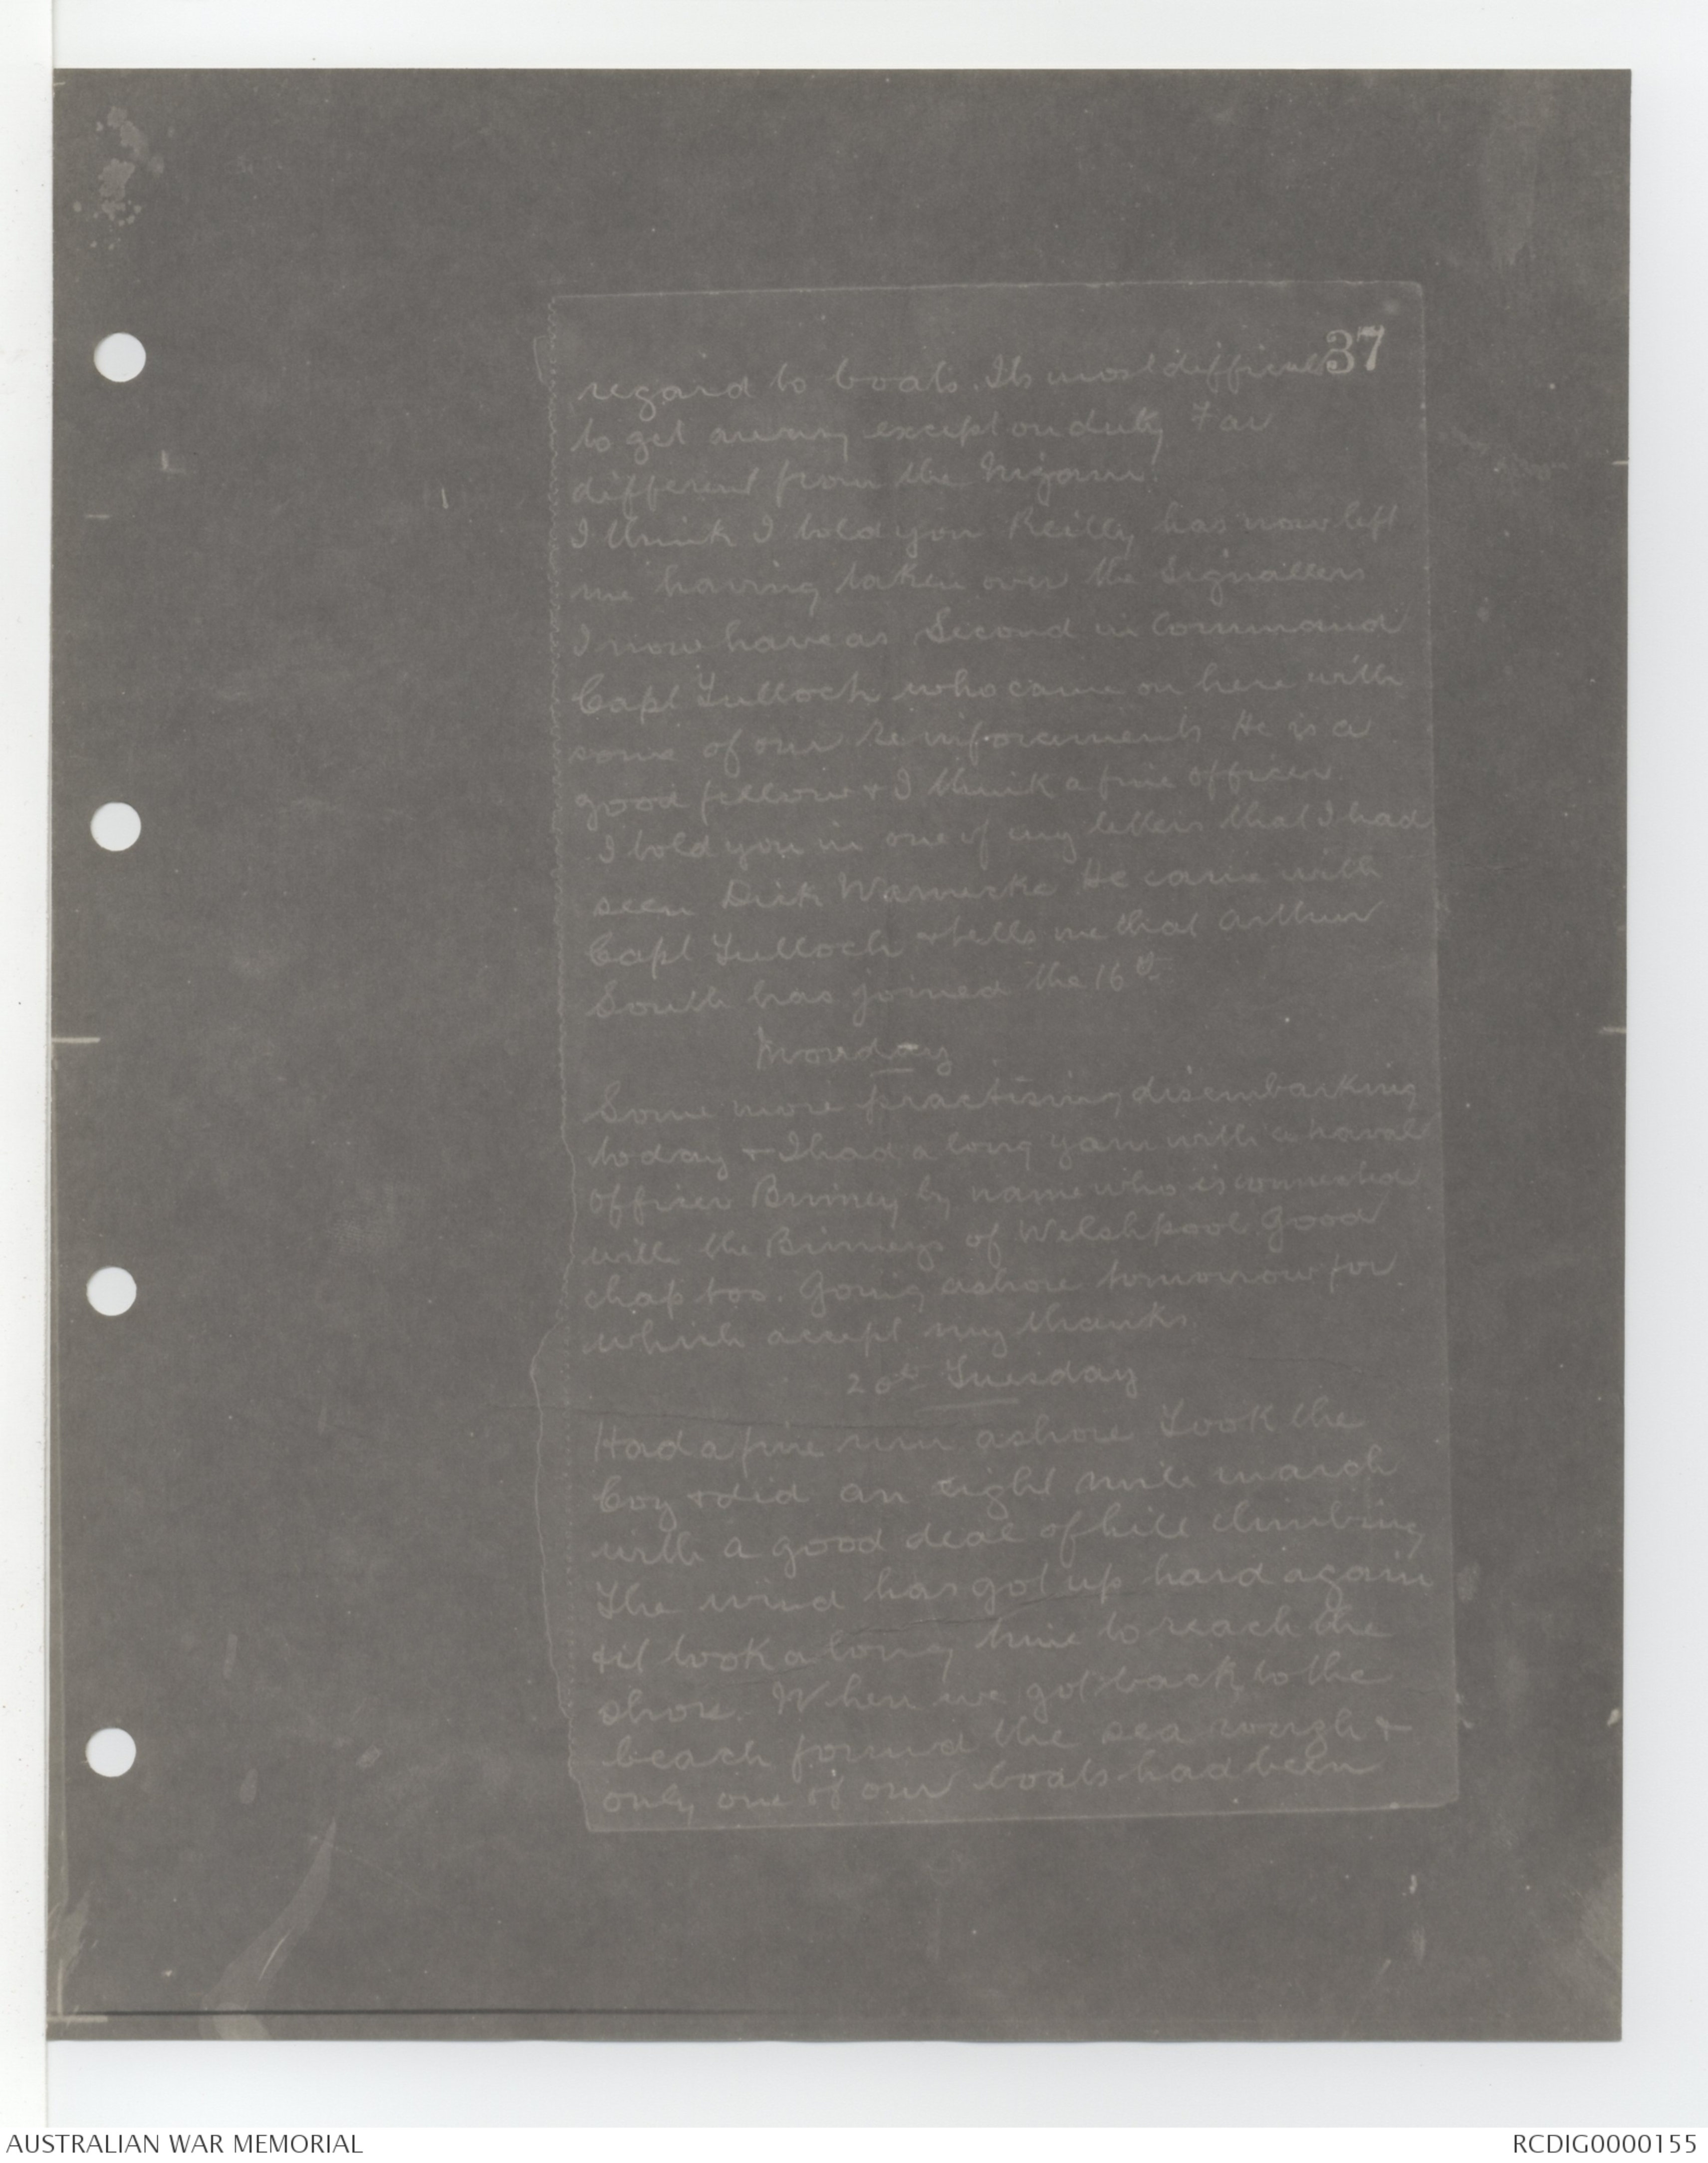 37
regard to boats. Its most difficult
to get away except on duty Far
different from the Nizam.
I think I told you Reilly has now left
me having taken over the Signallers
I now have as Second in Command
Capt Tulloch who came on here with
some of our Reinforcements He is a
good fellow & I think a fine officer.
I told you in one of my letters that I had
seen Dick Warnecke He came with
Capt Tulloch & tells me that Arthur
South has joined the 16th
Monday
Some more practising disembarking
today & I had a long yarn with a naval
officer Binney by name who is connected
with the Binneys of Welshpool Good
chap too. Going ashore tomorrow for
which accept my thanks.
20th Tuesday
Had a fine run ashore Took the
Coy & did an eight mile march
with a good deal of hill climbing
The wind has got up hard again
& it took a long time to reach the
shore. When we got back to the
beach found the sea rough &
only one of our boats had been
AUSTRALIAN WAR MEMORIAL
RCDIG0000155